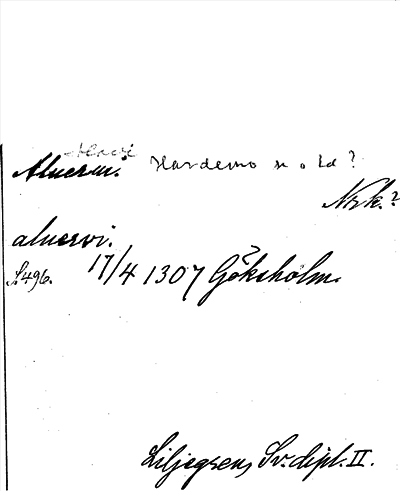 Aluerui. Hardemo sn o hd?
Nrk.?
aluervi.
S. 496. 17/4 1307 Göksholm.
Liljegren, Sv. dipl. II.